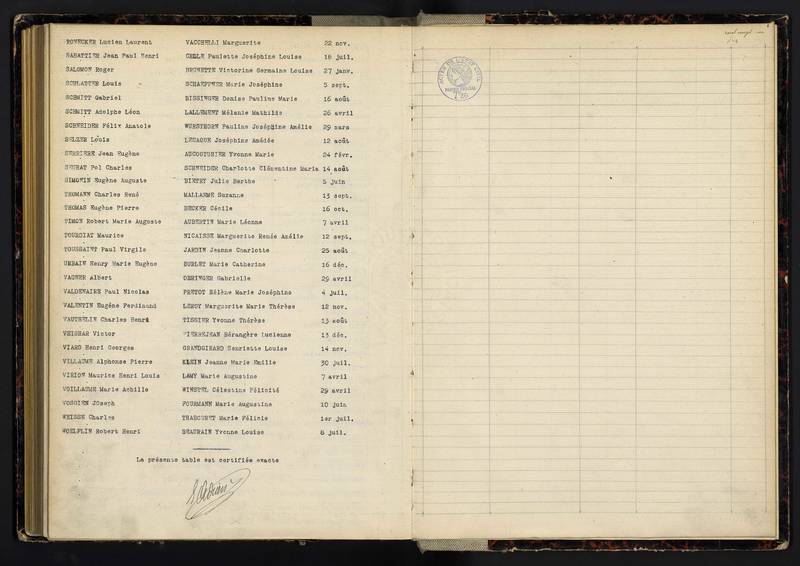 RONECKER Lucien Laurent VACCHELLI Marguerite 22 nov.
SABATTIER Jean Paul Henri CELLE Paulette Joséphine Louise 18 juil.
SALOMON Roger BRUNETTE Victorine Germaine Louise 27 janv.
SCHLATTER Louis SCHAEFFNER Marie Joséphine 5 sept.
SCHMITT Gabriel BISSINGER Denise Pauline Marie 16 août
SCHMITT Adolphe Léon LALLEMENT Mélanie Mathilde 26 avril
SCHNEIDER Félix Anatole WURSTHORN Pauline Joséphine Amélie 29 mars
SELZER Louis LECAQUE Joséphine Amédée 12 août
SERRIERE Jean Eugène ADCOUTURIER Yvonne Marie 24 févr.
SEURAT Pol Charles SCHNEIDER Charlotte Clémentine Maria 14 août
SIMONIN Eugène Auguste BIETRY Julie Berthe 5 juin
THOMANN Charles René MALLARME Suzanne 13 sept.
THOMAS Eugène Pierre BECKER Cécile 16 oct.
TIMON Robert Marie Auguste AUBERTIN Marie Léonne 7 avril
TOURDIAT Maurice NICAISSE Marguerite Renée Amélie 12 sept.
TOUSSAINT Paul Virgile JARDIN Jeanne Charlotte 25 août
URBAIN Henry Marie Eugène BURLET Marie Catherine 16 déc.
VAGNER Albert OBRINGER Gabrielle 29 avril
VALDENAIRE Paul Nicolas PRETOT Hélène Marie Joséphine 4 juil.
VALENTIN Eugène Ferdinand LEROY Marguerite Marie Thérèse 12 nov.
VAUTHELIN Charles Henri TISSIER Yvonne Thérèse 13 août
VEIGHAR Victor PIERREJEAN Bérangère Lucienne 13 déc.
VIARD Henri Georges GRANDGIRARD Henriette Louise 14 nov.
VILLAUME Alphonse Pierre KLEIN Jeanne Marie Emilie 30 juil.
VIRION Maurice Henri Louis LAMY Marie Augustine 7 avril
VOILLAUME Marie Achille WINSTEL Célestine Félicité 29 avril
VOSGIEN JOseph FOURMANN Marie Augustine 10 juin
WEISSE Charles THAECUNET Marie Félicie 1er juil.
WOELFLIN Robert Henri BEAURAIN Yvonne Louise 8 juil.
La présente table est certifiée exacte